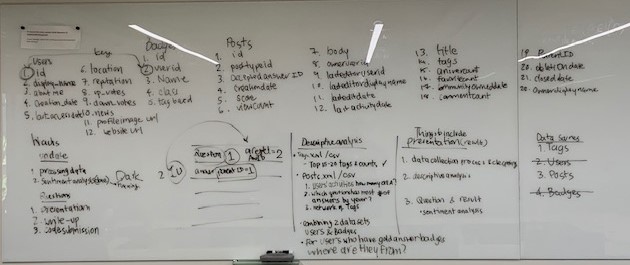 Users
1. id
2. display-name
3. about me
4. creation_date
5. 
6. location
7. reputation
8. up_votes
9. down_votes
10. views
11. profile image url
12. website url
Badges
1. id
2. userid
3. Name
4. class
5. tag based
Posts
1. id
2. posttypeid
3. acceptedanswerID
4. creationdate
5. score
6. viewcount
7. body
8. owneruserid
9. lasteditoruserid
10. lasteditordisplayname
11. lasteditdate
12. lastactivitydate
13. title
14. tags
15. answercount
16. favoritecount
17. communityowneddate
18. commentcount
19. ParentID
20. deletiondate
21. closeddate
20. Ownerdisplayname
1. processing data
2. Sentiment analysis
1. presentation
2. write-up
3. submission
Data
Question 1
answer parent ID = 1
2
= 2
Descriptive analysis
Tags.xml / csv
Top 15-20 tags & counts
Posts.xml / csv
1. Users' activities how many are?
2. which question has most # of
answers by year?
3. network of Tags
combining 2 datasets
Users & Badges
For users who have gold answer badges
where are they from?
Things to include
presentation (result)
1. data collection process & cleaning
2. descriptive analysis
3. Question & result
- sentiment analysis
Data Saves
1. Tags
2. Users
3. Posts
4. Badges